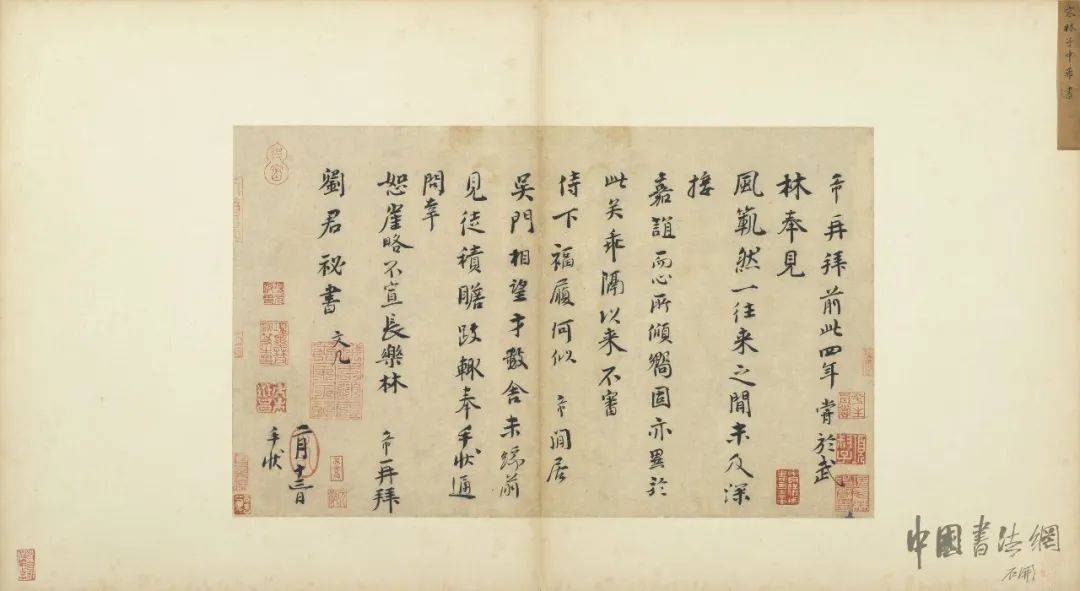 宋林子中希書
希再拜前此四年嘗於武
林奉見
風範然一往来之間未及深
接
嘉誼而心所傾嚮固亦異於
此矣乖隔以来不審
侍下福履何似 希閒居
吳門相望才數舍未緣前
見徒積瞻跂輙奉手狀通
問幸
恕崖略不宣長樂林 希再拜
二月十三日
手狀
劉君祕書 文几
中國書法網
石開